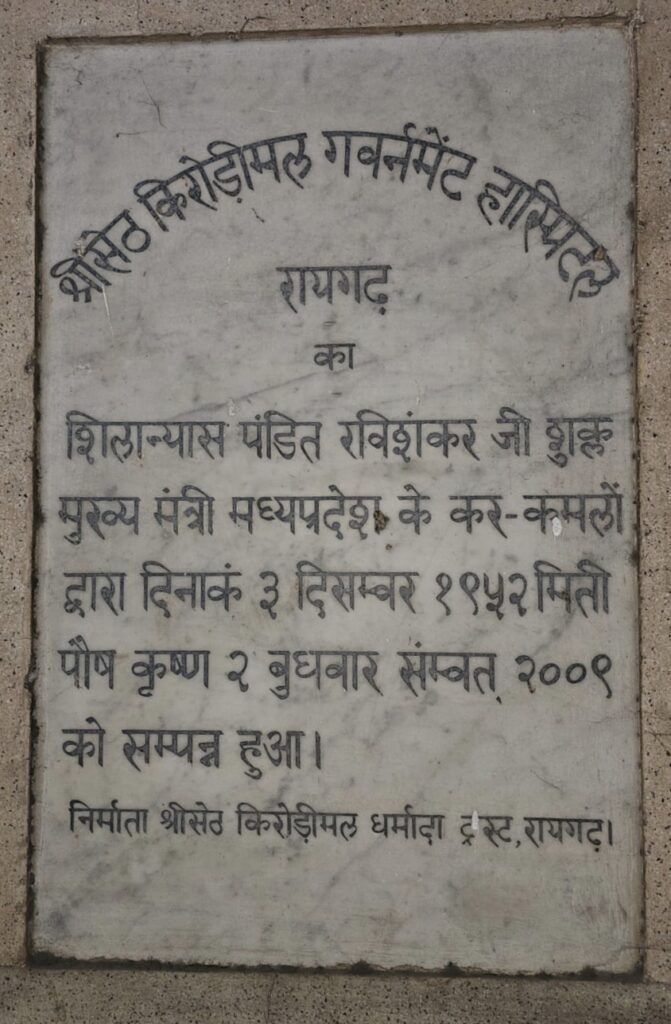 श्रीसेठ किरोड़ीमल गवर्नमेंट हास्पिटल
रायगढ़
का
शिलान्यास पंडित रविशंकर जी शुक्ल
मुख्य मंत्री मध्यप्रदेश के कर-कमलों
द्वारा दिनाकं ३ दिसम्वर १९५२ मिती
पौष कृष्ण २ बुधवार संम्वत् २००९
को सम्पन्न हुआ।
निर्माता श्रीसेठ किरोड़ीमल धर्मादा ट्रस्ट, रायगढ़।